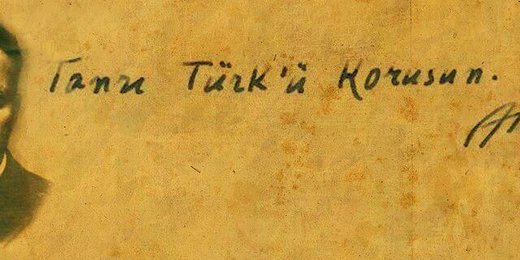 Tanrı Türk'ü Korusun.